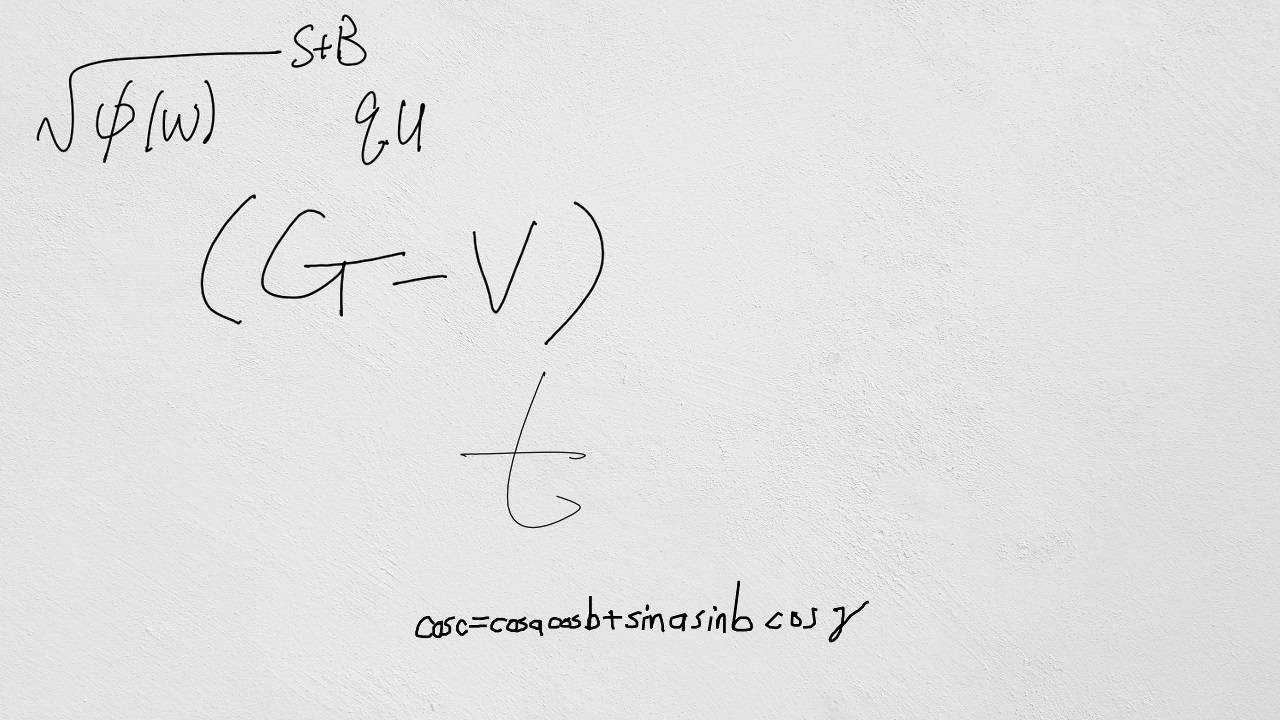 √φ(w) S+B
q.u
(G-V)
t
cosc=cosacosb+sinasinb cosγ